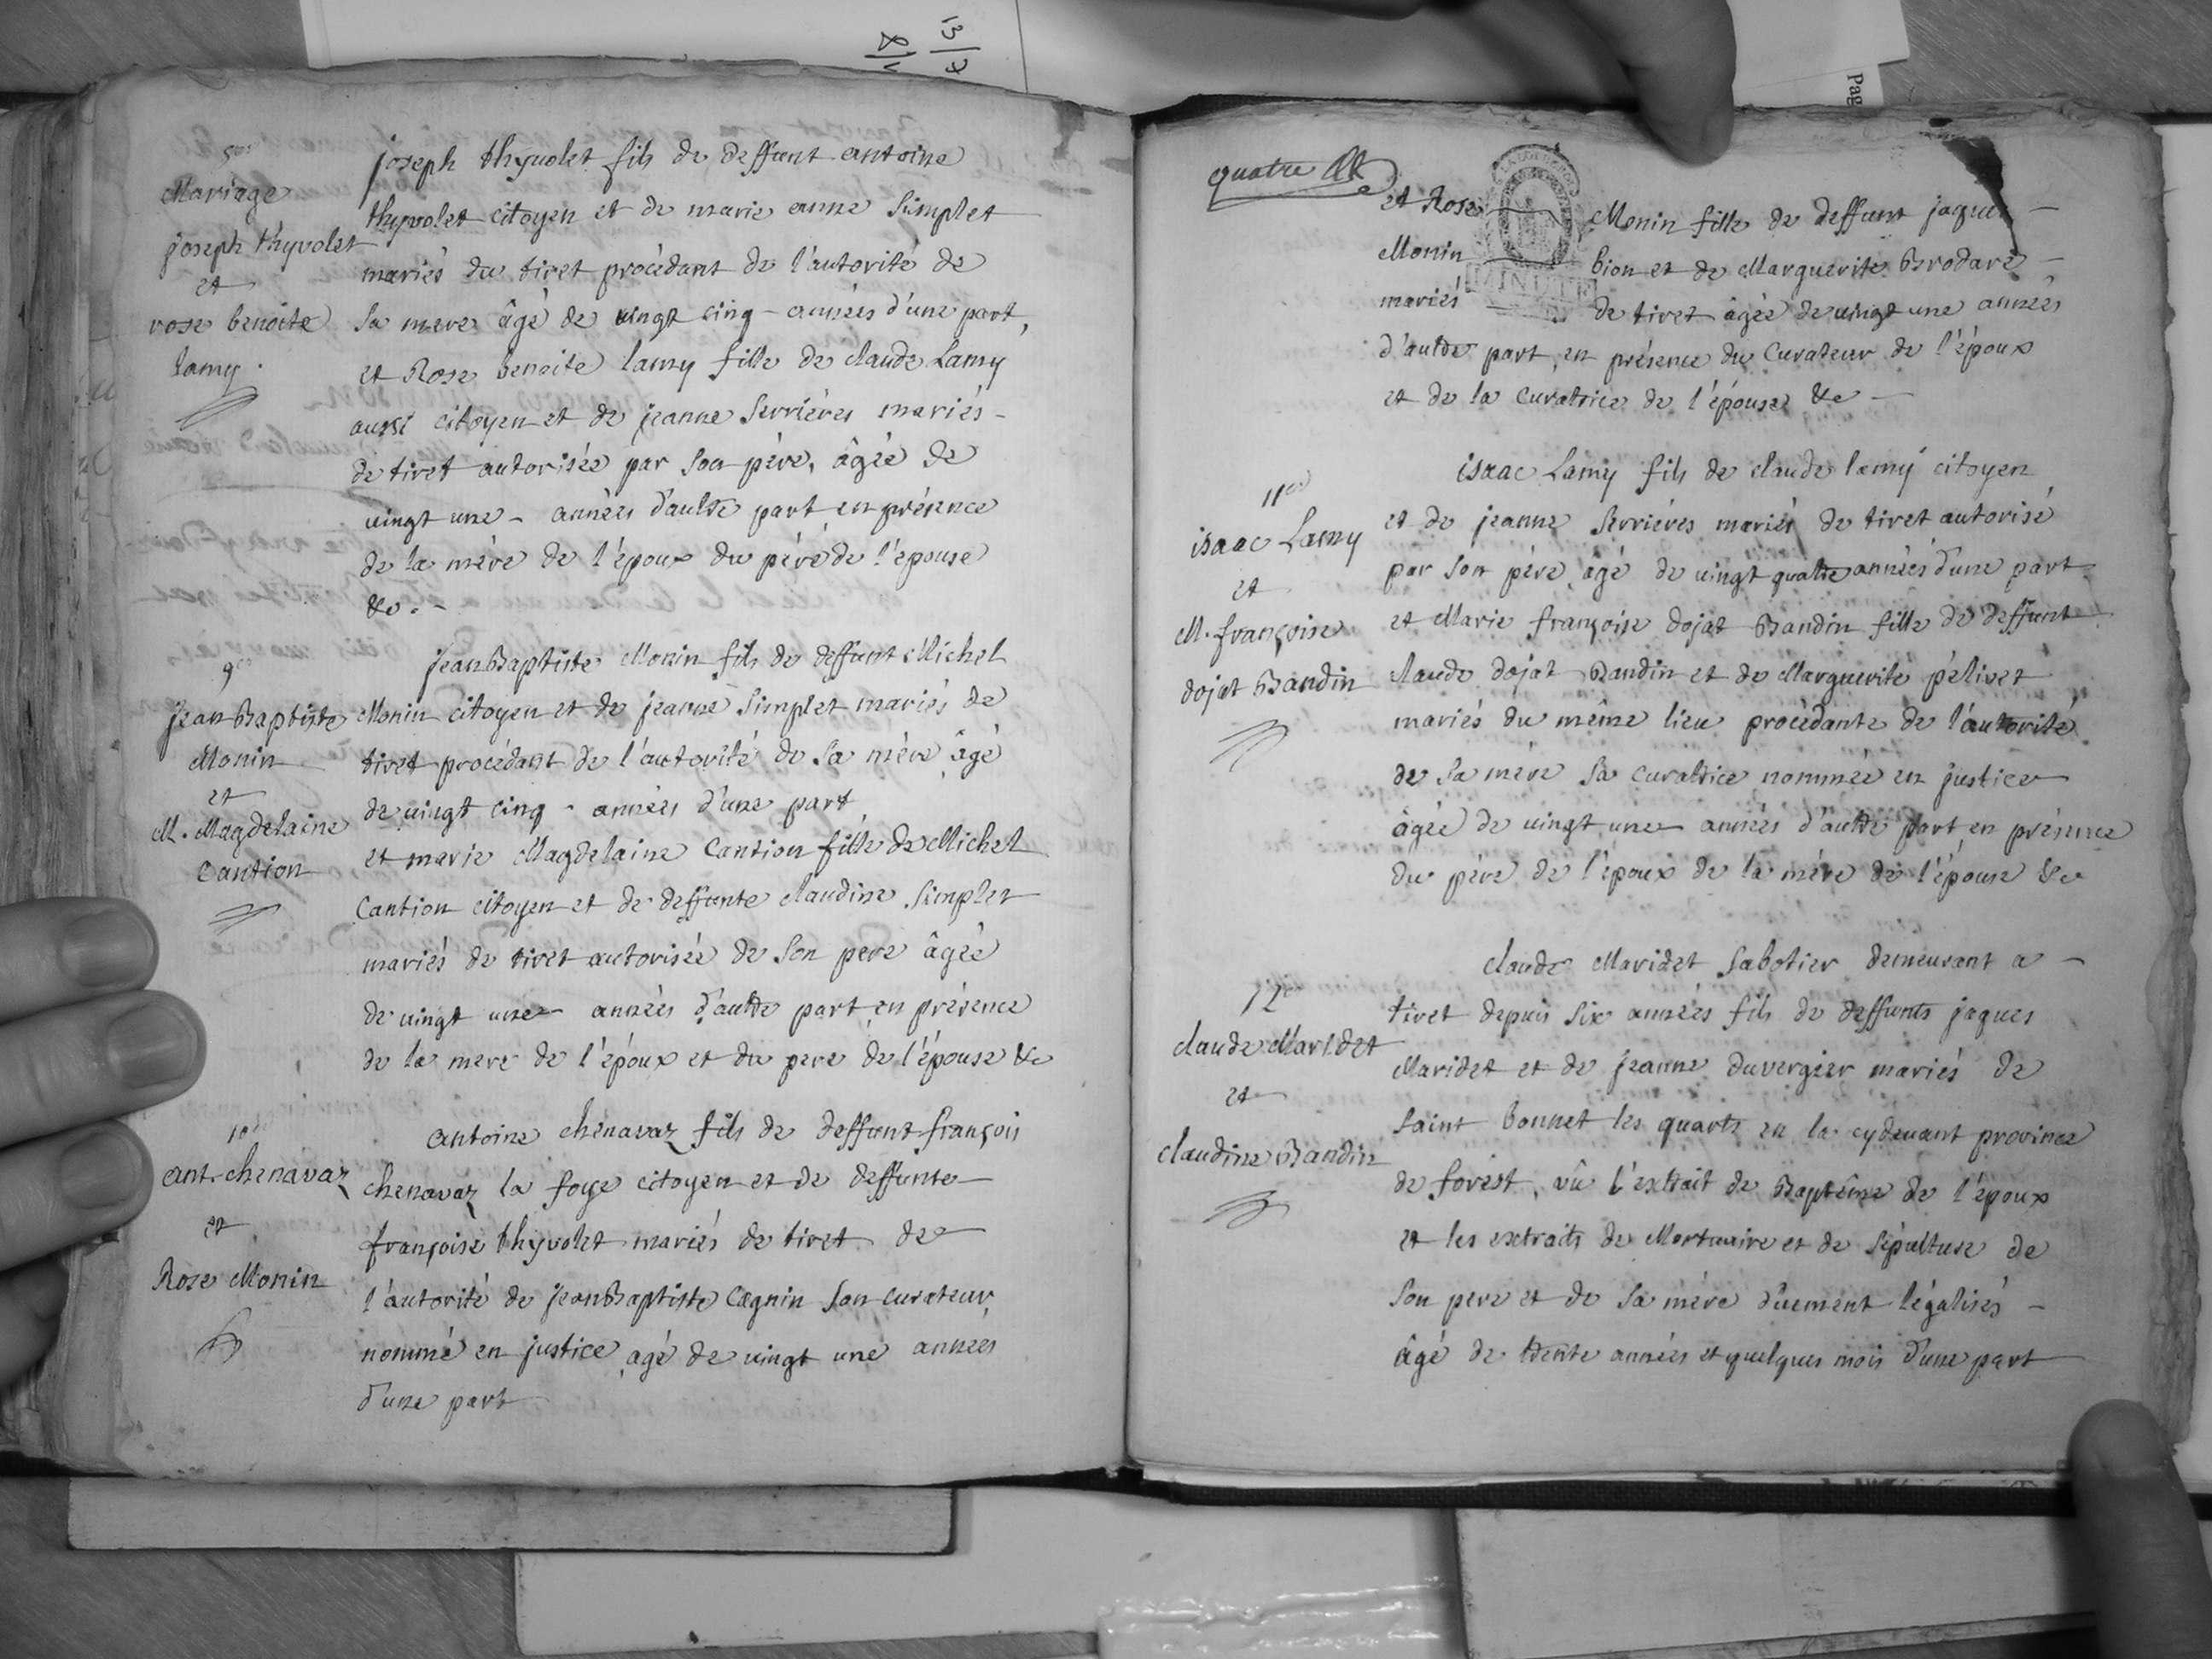 13/7
8/1
Pag
Mariage
joseph thyvolet
et
rose benoite
lamy.
joseph thyvolet fils de deffunt antoine
thyvolet citoyen et de marie anne Simplet
mariés du tiret procédant de l'autorité de
sa mere âgé de vingt cinq - années d'une part,
et Rose benoite lamy fille de claude Lamy
aussi citoyen et de jeanne Serriéres mariés -
de tiret autorisée par son père, âgée de
vingt une - années d'autre part en présence
de la mére de l'époux du pére de l'épouse
&c. -
9e
jean Baptiste
Monin
et
M. Magdelaine
Cantion
jean Baptiste Monin fils de deffunt Michel
Monin citoyen et de jeanne Simplet mariés de
tiret procédant de l'autorité de sa mére âgé
de vingt cinq - années d'une part
et marie Magdelaine Cantion fille de Michel
Cantion citoyen et de deffunte claudine Simplet
mariés de tiret autorisée de son pere âgée
de vingt une - années d'autre part en présence
de la mere de l'époux et du pere de l'épouse &c
10e
ant. chenavaz
et
Rose Monin
antoine chénavaz fils de deffunt françois
chenavaz la foye citoyen et de deffunte
françoise thyvolet mariés de tiret de
l'autorité de jean Baptiste Cagnin son curateur
nommé en justice agé de vingt une années
d'une part
quatre
et Rose Monin fille de deffunt jaques -
Monin bion et de Marguerite Brodare -
mariés de tiret âgée de vingt une années
MINUTE
d'autre part, en présence du Curateur de l'époux
et de la Curatrice de l'épouse &c -
11e
isaac Lamy
et
M. françoise
dojat Bandin
isaac Lamy fils de claude lamy citoyen
et de jeanne Serriéres mariés de tiret autorisé
par son pére, âgé de vingt quatre années d'une part
et Marie françoise dojat Bandin fille de deffunt
claude dojat Bandin et de Marguerite pélivet
mariés du même lieu procédante de l'autorité
de sa mére sa curatrice nommée en justice
âgée de vingt une années d'autre part en présence
du pére de l'époux de la mére de l'épouse &c
12e
claude Maridet
et
claudine Bandin
claude Maridet Sabotier demeurant a -
tiret depuis six années fils de deffunts jaques
Maridet et de jeanne duvergier mariés de
saint bonnet les quarts en la cydevant province
de forest, vû l'extrait de Baptême de l'époux
et les extraits de Mortuaire et de sépulture de
son pere et de sa mére duement légalisés -
âgé de trente années et quelques mois d'une part